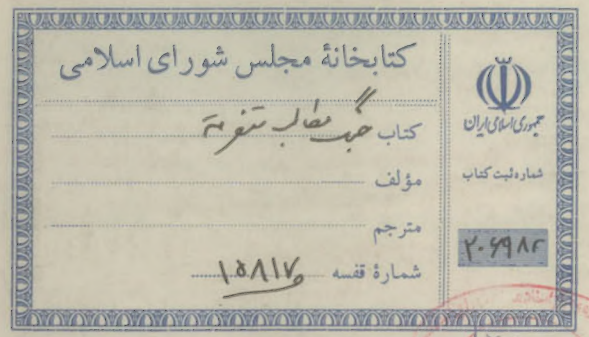 کتابخانهٔ مجلس شورای اسلامی
کتاب جنگ مطالب متفرقة
مؤلف
مترجم
شمارهٔ قفسه ۱۵۸۱۷
جمهوری اسلامی ایران
شماره ثبت کتاب
۲۰۶۹۸۲